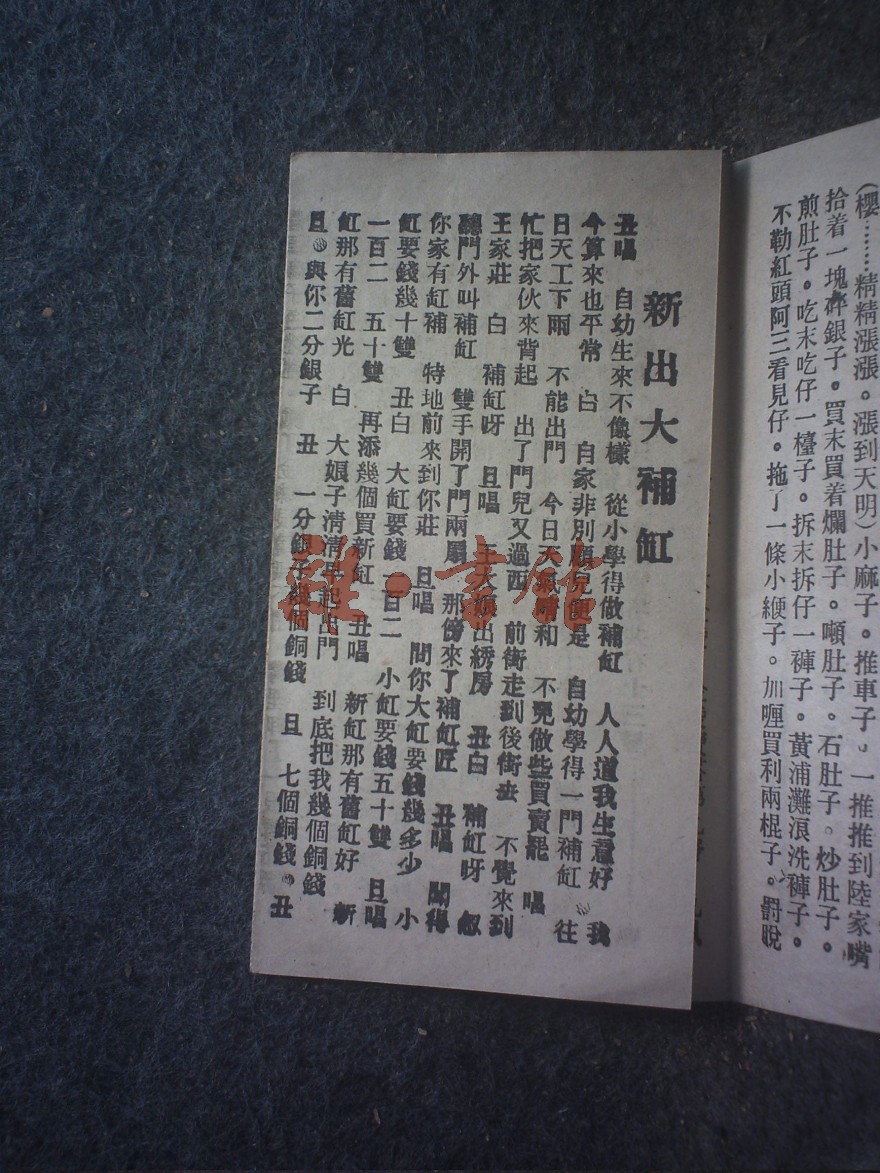 (櫻……精精漲漲。漲到天明)小麻子。推車子。一推推到陸家嘴
拾着一塊碎銀子。買末買着爛肚子。噸肚子。石肚子。炒肚子。
煎肚子。吃末吃仔一檯子。拆末拆仔一褲子。黃浦灘浪洗褲子。
不勒紅頭阿三看見仔。拖了一條小綆子。加喱買利兩棍子。罰脫
新出大補缸
丑唱 自幼生來不像樣 從小學得做補缸 人人道我生意好 我
今算來也平常 白 自家非別顧兒便是 自幼學得一門補缸 往
日天工下雨 不能出門 今日天氣晴和 不免做些買賣罷 唱
忙把家伙來背起 出了門兒又過西 前街走到後街去 不覺來到
王家莊 白 補缸呀 旦唱 王大娘出綉房 丑白 補缸呀 忽
聽門外叫補缸 雙手開了門兩扇 那傍來了補缸匠 丑唱 聞得
你家有缸補 特地前來到你莊 旦唱 問你大缸要錢幾多少 小
缸要錢幾十雙 丑白 大缸要錢一百二 小缸要錢五十雙 旦唱
一百二 五十雙 再添幾個買新缸 丑唱 新缸那有舊缸好 新
缸那有舊缸光 白 大娘子清清早起出門 到底把我幾個銅錢
旦 與你二分銀子 丑 一分銀子幾個銅錢 旦 七個銅錢 丑
雜·書館